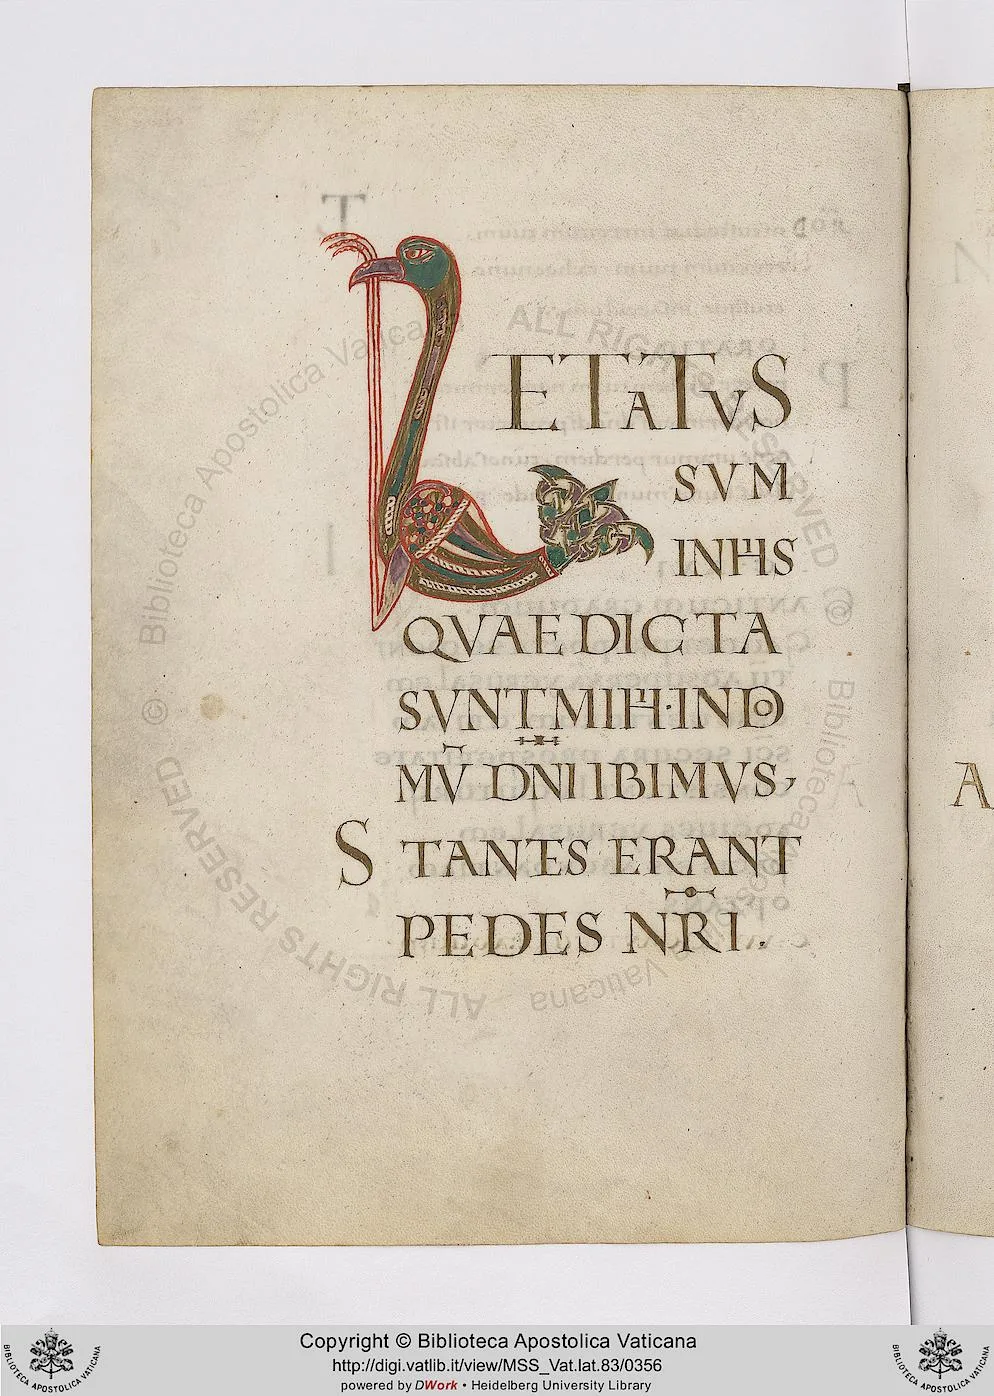 LETATUS
SVM
INHIS
QVAE DICTA
SVNT MIHI · IN DO
MV̄ DN̄I IBIMVS,
STANTES ERANT
PEDES NR̄I.
A
ALL RIGHTS RESERVED
© Biblioteca Apostolica Vaticana
ALL RIGHTS RESERVED
© Biblioteca Apostolica Vaticana
BIBLIOTECA APOSTOLICA VATICANA
Copyright © Biblioteca Apostolica Vaticana
http://digi.vatlib.it/view/MSS_Vat.lat.83/0356
powered by DWork • Heidelberg University Library
BIBLIOTECA APOSTOLICA VATICANA